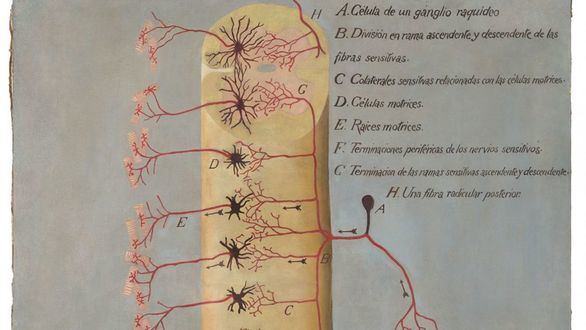 A. Célula de un ganglio raquideo
B. División en rama ascendente y descendente de las
fibras sensitivas.
C Colaterales sensitivas relacionadas con las células motrices.
D. Células motrices.
E. Raices motrices.
F. Terminaciones periféricas de los nervios sensitivos.
G Terminacion de las ramas sensitivas ascendente y descendente.
H. Una fibra radicular posterior.
H
G
D
A
E
B
C